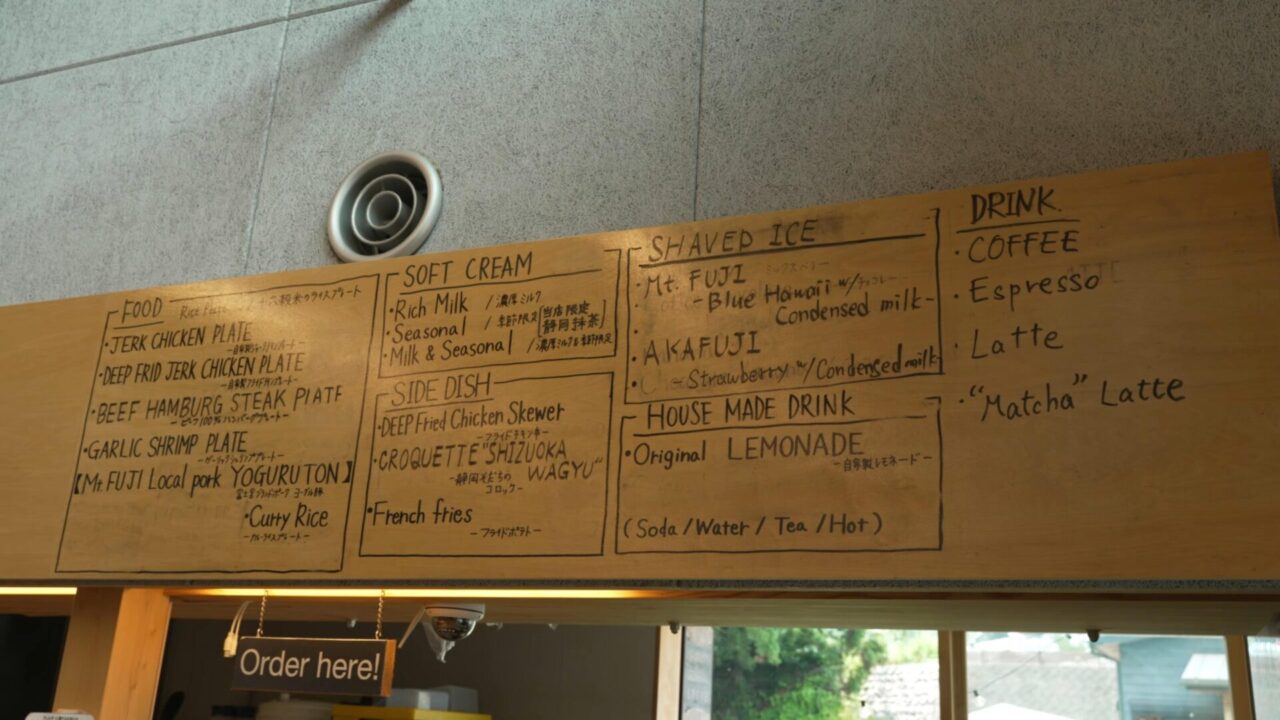 FOOD
十六穀米のライスプレート
・JERK CHICKEN PLATE
・DEEP FRID JERK CHICKEN PLATE
・BEEF HAMBURG STEAK PLATE
・GARLIC SHRIMP PLATE
【Mt FUJI Local pork YOGURUTON】
・Curry Rice
SOFT CREAM
・Rich Milk /濃厚ミルク
・Seasonal /季節限定 [当店限定 静岡抹茶]
・Milk & Seasonal /濃厚ミルク&季節限定
SIDE DISH
・DEEP Fried Chicken Skewer
・CROQUETTE "SHIZUOKA
WAGYU"
-静岡そだちの
コロッケ-
・French fries
-フライドポテト-
SHAVED ICE
・Mt. FUJI
-Blue Hawaii w/
Condensed milk-
・AKAFUJI
-Strawberry w/Condensed milk-
HOUSE MADE DRINK
・Original LEMONADE
-自家製レモネード-
(Soda/Water/Tea/Hot)
DRINK
・COFFEE
・Espresso
・Latte
・"Matcha" Latte
Order here!